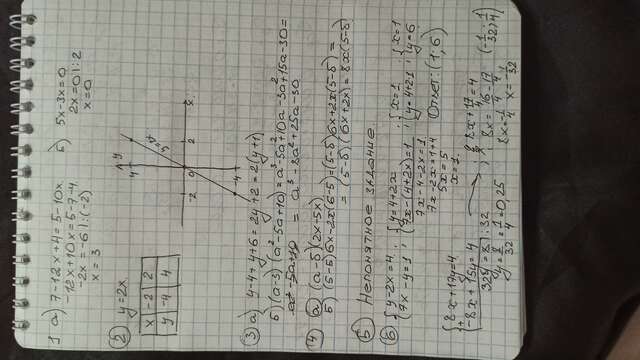 1 а) 7-12x+4=5-10x
-12x+10x=5-7-4
-2x=6|:(-2)
x=3
б) 5x-3x=0
2x=0|:2
x=0
2) y=2x
x -2 2
y -4 4
y
x
3) а) y-4+y+6=2y+2=2(y+1)
Б) (a-3)(a²-5a+10)=a³-5a²+10a-3a²+15a-30=
=a³-8a²+25a-30
4) а) (a-b)(2x-5x)
Б) (b-5) 6x-2x(b-5)=(5-b)6x+2x(5-b)=
=(5-b)(6x+2x)=8x(5-b)
5) Непонятное задание.
6) {y-2x=4 ; {y=4+2x ; {x=1 ; {x=1
7x-y=1 ; 7x-(4+2x)=1 ; y=4+2·1 ; y=6
7x-4-2x=1
7x-2x=1+4
5x=5
x=1.
Ответ: (1, 6)
{8x+17y=4
-8x+15y=4
32y=8 |:32
y=8/32=1/4=0,25
8x+17/4=4
8x=16-17/4
8x=-1/4
x=1/32
(-1/32; 1/4)